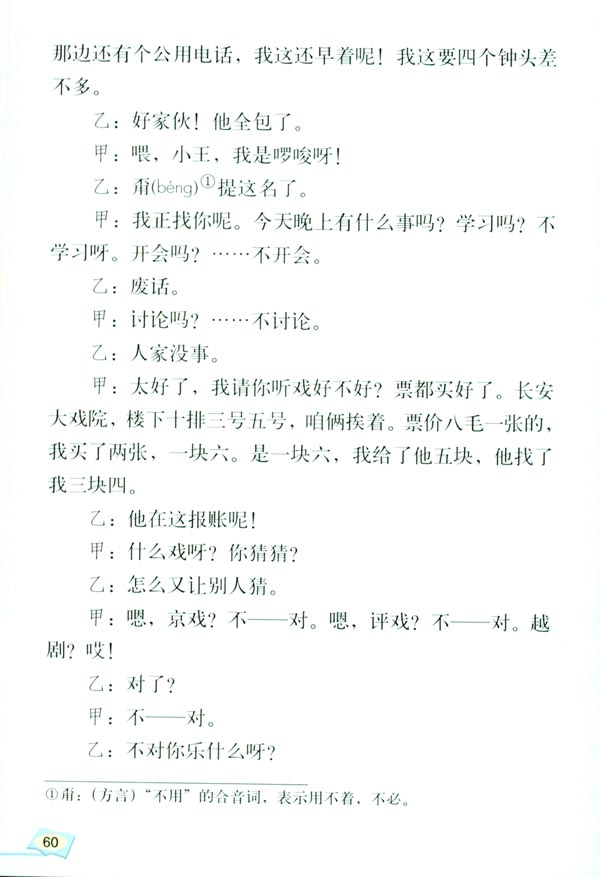 那边还有个公用电话，我这还早着呢！我这要四个钟头差
不多。
乙：好家伙！他全包了。
甲：喂，小王，我是啰唆呀！
乙：甭(béng)①提这名了。
甲：我正找你呢。今天晚上有什么事吗？学习吗？不
学习呀。开会吗？……不开会。
乙：废话。
甲：讨论吗？……不讨论。
乙：人家没事。
甲：太好了，我请你听戏好不好？票都买好了。长安
大戏院，楼下十排三号五号，咱俩挨着。票价八毛一张的，
我买了两张，一块六。是一块六，我给了他五块，他找了
我三块四。
乙：他在这报账呢！
甲：什么戏呀？你猜猜？
乙：怎么又让别人猜。
甲：嗯，京戏？不——对。嗯，评戏？不——对。越
剧？哎！
乙：对了？
甲：不——对。
乙：不对你乐什么呀？
①甭：(方言)“不用”的合音词，表示用不着，不必。
60